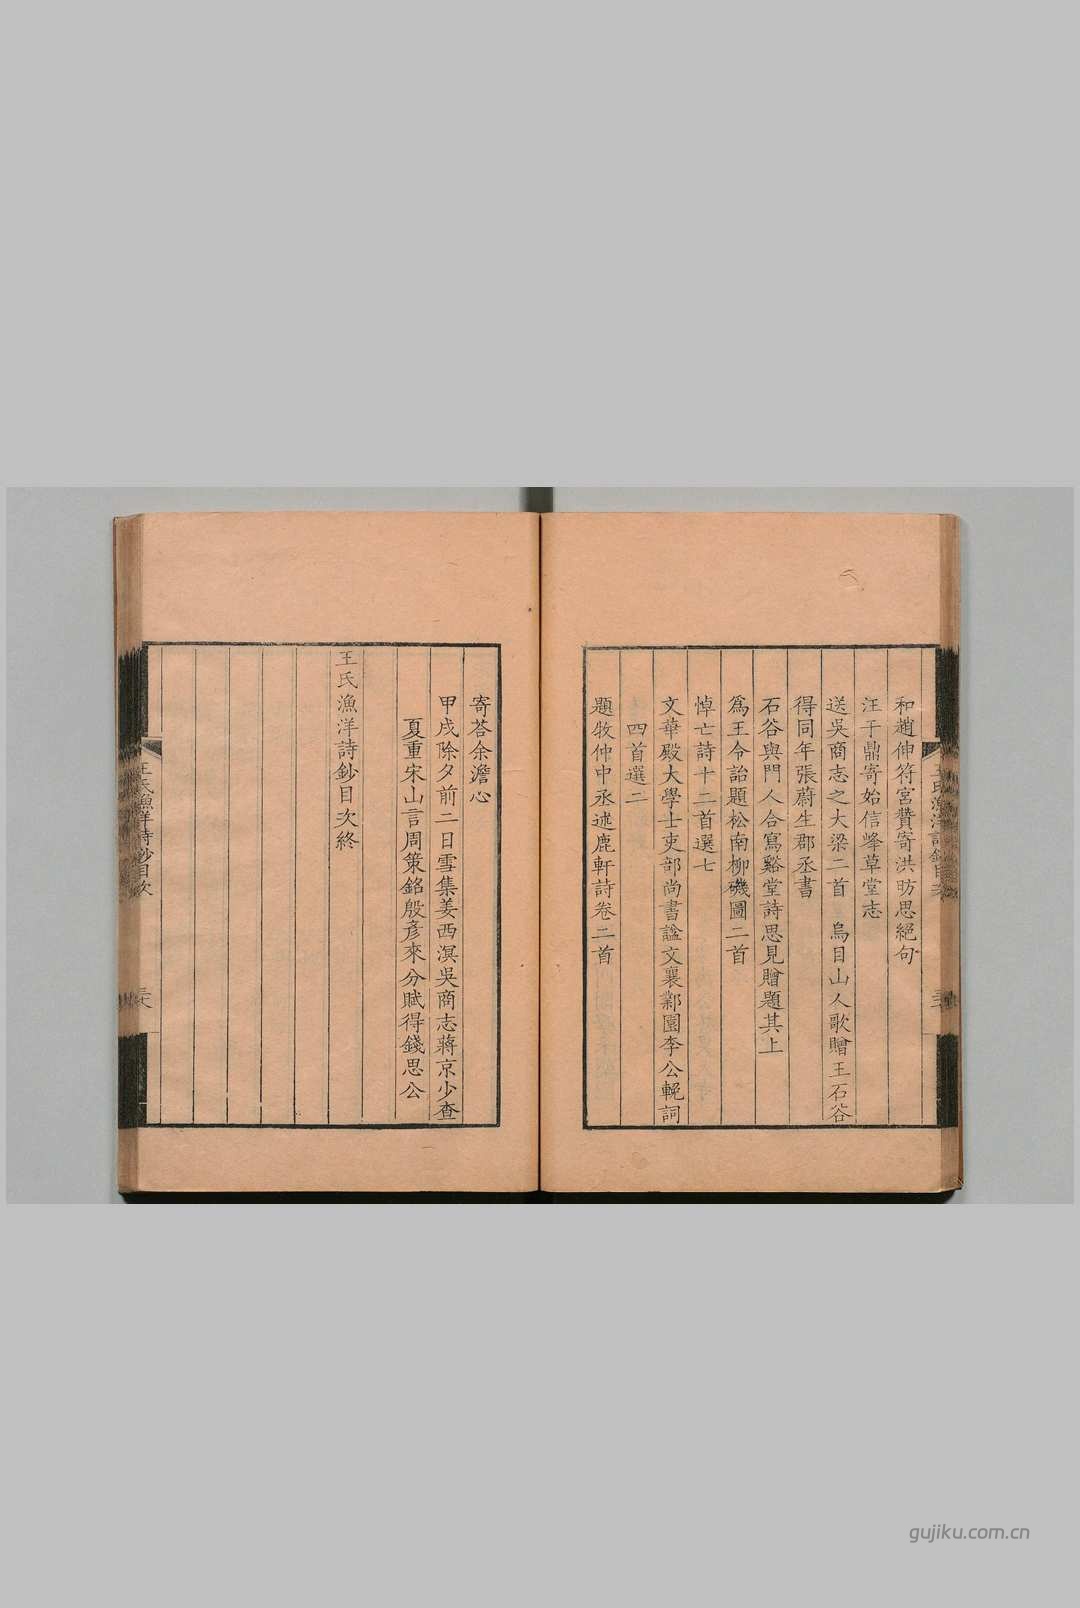 和趙伸符宮贊寄洪昉思絕句
汪于鼎寄始信峰草堂志
送吳商志之大梁二首　烏目山人歌贈王石谷
得同年張蔚生郡丞書
石谷與門人合寫谿堂詩思見贈題其上
爲王令詒題松南柳磯圖二首
悼亡詩十二首選七
文華殿大學士吏部尚書諡文襄鄴園李公輓詞
四首選二
題牧仲中丞述鹿軒詩卷二首
寄荅余澹心
甲戌除夕前二日雪集姜西溟吳商志蔣京少查
夏重宋山言周策銘殷彥來分賦得錢思公
王氏漁洋詩鈔目次終
王氏漁洋詩鈔目次
gujiku.com.cn